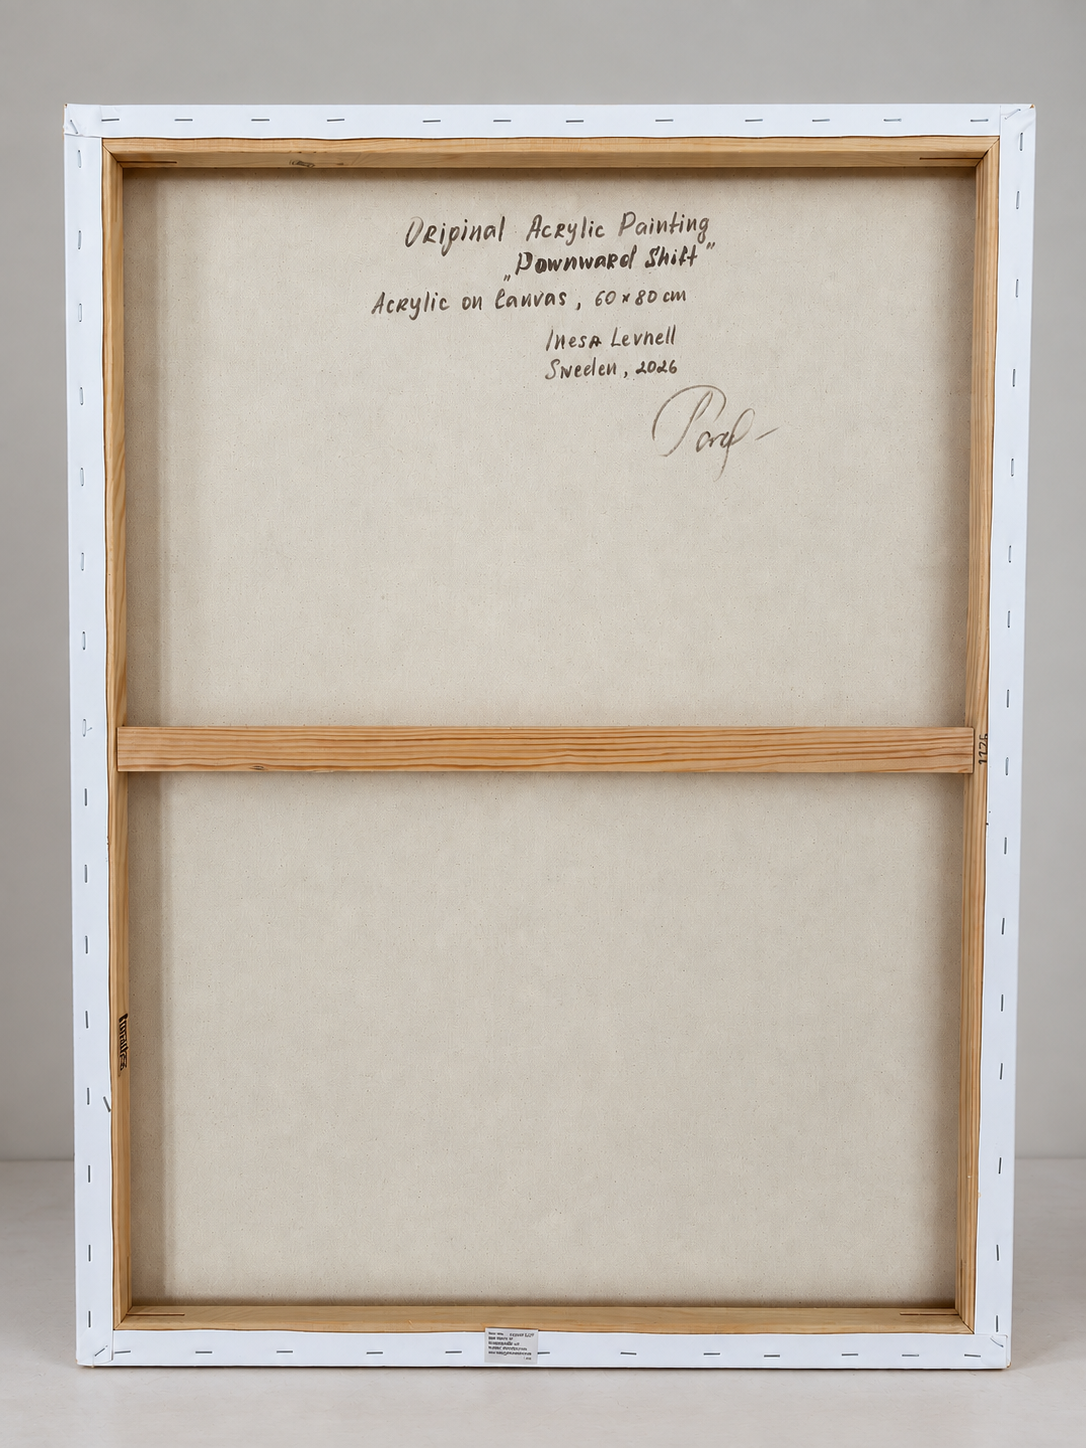 Original Acrylic Painting
„Downward Shift”
Acrylic on Canvas, 60 x 80 cm
Inesa Levnell
Sweden, 2026
1176